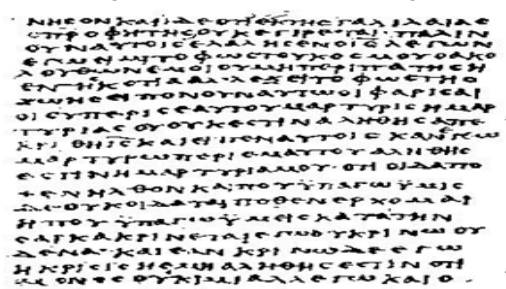 ΝΗϹΟΝΚΑΙΙΔΕΟΤΙΕΚΤΗϹΓΑΛΙΛΑΙΑϹ
ΠΡΟΦΗΤΗϹΟΥΚΕΓΙΡΕΤΑΙ·ΠΑΛΙΝ
ΟΥΝΑΥΤΟΙϹΕΛΑΛΗϹΕΝΟΙϹΛΕΓΩΝ
ΕΓΩΕΙΜΙΤΟΦΩϹΤΟΥΚΟϹΜΟΥΟΑΚΟ
ΛΟΥΘΩΝΕΜΟΙΟΥΜΗΠΕΡΙΠΑΤΗϹΗ
ΕΝΤΗϹΚΟΤΙΑΑΛΛΕΞΕΙΤΟΦΩϹΤΗϹ
ΖΩΗϹΕΙΠΟΝΟΥΝΑΥΤΩΟΙΦΑΡΙϹΑΙ
ΟΙϹΥΠΕΡΙϹΕΑΥΤΟΥΜΑΡΤΥΡΙϹΗΜΑΡ
ΤΥΡΙΑϹΟΥΟΥΚΕϹΤΙΝΑΛΗΘΗϹΑΠΕ
ΚΡΙΘΗΙϹΚΑΙΕΙΠΕΝΑΥΤΟΙϹΚΑΝΕΓΩ
ΜΑΡΤΥΡΩΠΕΡΙΕΜΑΥΤΟΥΑΛΗΘΗϹ
ΕϹΤΙΝΗΜΑΡΤΥΡΙΑΜΟΥ·ΟΤΙΟΙΔΑΠΟ
ΘΕΝΗΛΘΟΝΚΑΙΠΟΥΫΠΑΓΩΫΜΙϹ
ΔΕΟΥΚΟΙΔΑΤΑΙΠΟΘΕΝΕΡΧΟΜΑΙ
ΗΠΟΥΫΠΑΓΩΫΜΕΙϹΚΑΤΑΤΗΝ
ϹΑΡΚΑΚΡΙΝΕΤΑΙΕΓΩΟΥΚΡΙΝΩΟΥ
ΔΕΝΑ·ΚΑΙΕΑΝΚΡΙΝΩΔΕΕΓΩ
ΗΚΡΙϹΙϹΗΕΜΗΑΛΗΘΗϹΕϹΤΙΝΟΤΙ
ΜΟΝΟϹΟΥΚΙΜΙΑΛΛΕΓΩΚΑΙΟ